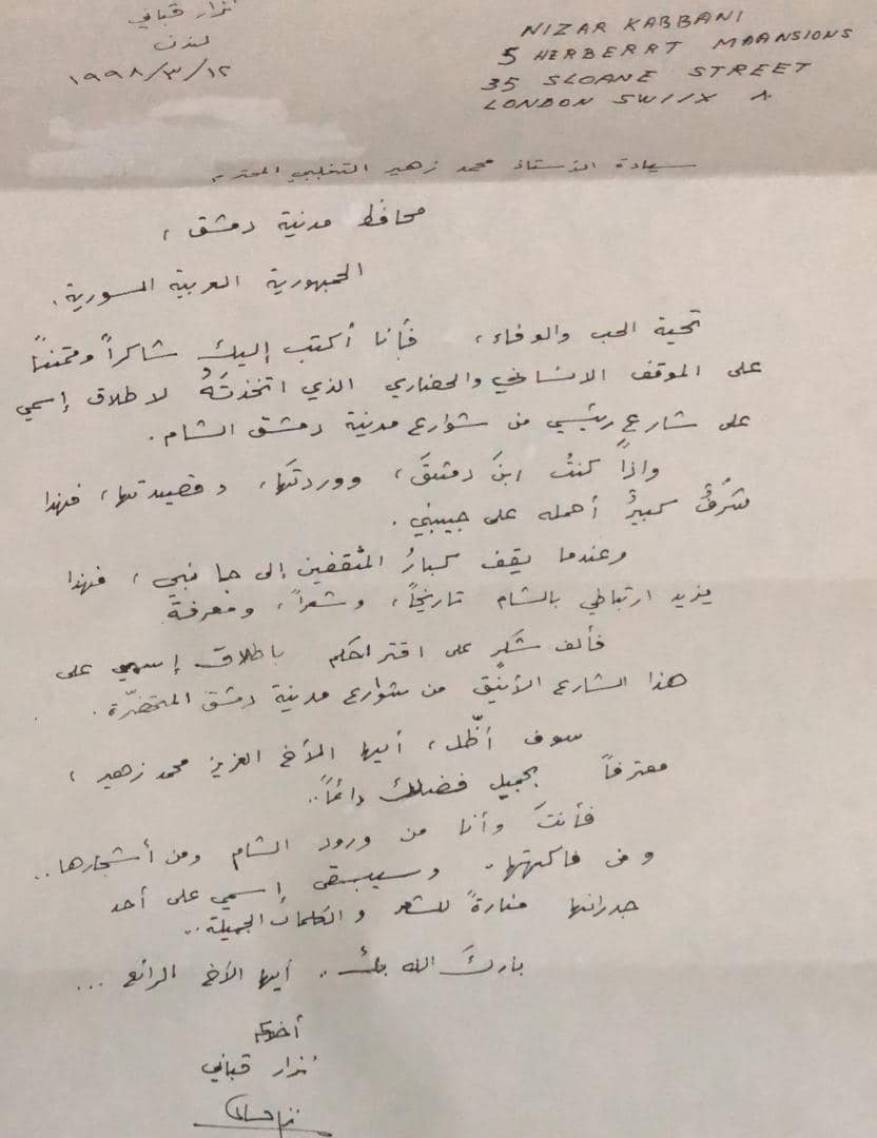 نزار قباني
لندن
١٩٩٨/٣/١٢
NIZAR KABBANI
5 HERBERRT MAANSIONS
35 SLOANE STREET
LONDON SW11X
سيادة الأستاذ محمد زهير التغلبي المحترم
محافظ مدينة دمشق ،
الجمهورية العربية السورية.
تحية الحب والوفاء، فأنا أكتب إليك شاكراً وممتنناً
على الموقف الانساني والحضاري الذي اتخذتَهُ لاطلاق إسمي
على شارع رئيسي من شوارع مدينة دمشق الشام.
واذا كنتُ ابنَ دمشقَ، ووردتَها، وقصيدتها، فهذا
شرَفٌ كبيرٌ أحمله على جبيني.
وعندما يقف كبارُ المثقفين إلى جانبي، فهذا
يزيد ارتباطي بالشام تاريخاً، وشعراً، ومعرفة
فألف شكرٍ على اقتراحكم باطلاق إسمي على
هذا الشارع الأنيق من شوارع مدينة دمشق المتحضّرة.
سوف أظّل، أيها الأخ العزيز محمد زهير،
معترفاً بجميل فضلك دائماً..
فأنتَ وأنا من ورود الشام ومن أشجارها..
ومن فاكهتها. وسيبقى إسمي على أحد
جدرانها منارةً للشعر والكلمات الجميلة..
باركَ الله بك.. أيها الأخ الرائع ...
أخوك
نزار قباني